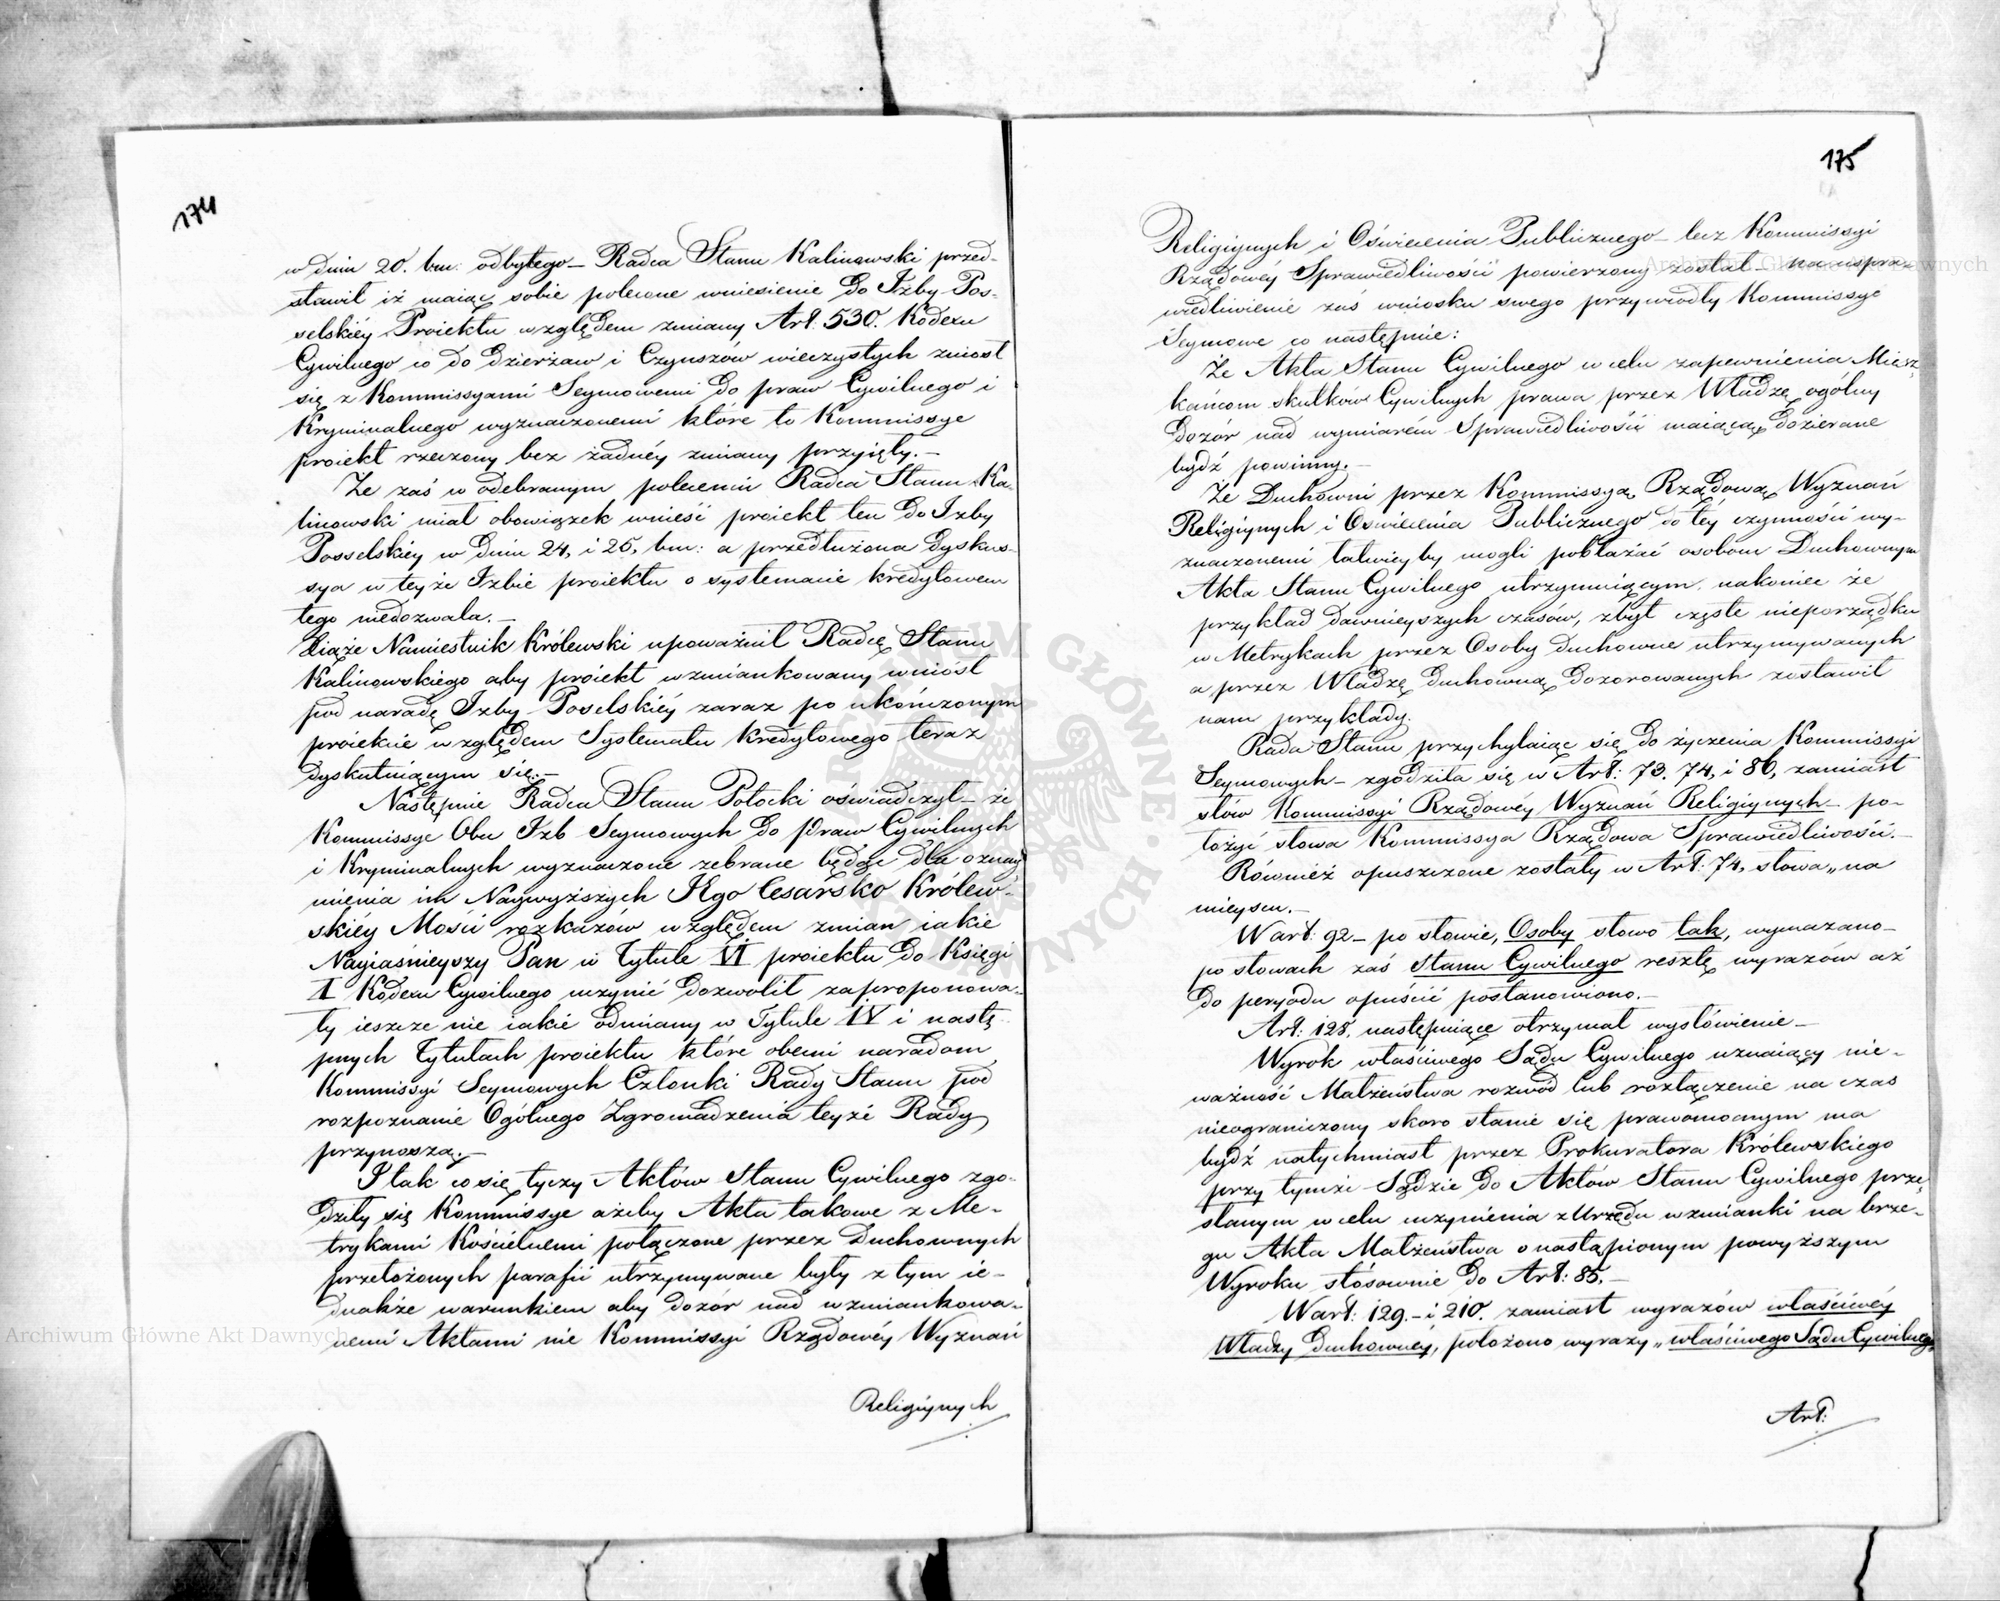 174
w dniu 20. bm: odbytego – Radca Stanu Kalinowski przed-
stawił iż maiąc sobie polecone wniesienie do Izby Pos-
selskiéy Proiektu względem zmiany Art: 530. Kodexu
Cywilnego co do dzierżaw i Czynszów wieczystych zniosł
się z Kommissyami Seymowemi do praw Cywilnego i
Kryminalnego wyznaczonemi które to Kommissye
proiekt rzeczony bez żadnéy zmiany przyięły. –
Że zaś w odebranym poleceniu Radca Stanu Ka-
linowski miał obowiązek wnieść proiekt ten do Izby
Posselskiéy w dniu 24, i 25, bm: a przedłużona dyskus-
sya w teyże Izbie proiektu o systemacie kredytowem
tego niedozwala. –
Xiąże Namiestnik Królewski upoważnił Radcę Stanu
Kalinowskiego aby proiekt wzmiankowany wniósł
pod naradę Izby Poselskiéy zaraz po ukończonym
proiekcie względem Systematu kredytowego teraz
dyskutuiącym się. –
Następnie Radca Stanu Potocki oświadczył – że
Kommissye Obu Izb Seymowych do praw Cywilnych
i Kryminalnych wyznaczone zebrane będąc dla oznay
mienia im Naywyższych Jego Cesarsko Królew-
skiéy Mości rozkazów względem zmian iakie
Nayiaśnieyszy Pan w Tytule VI proiektu do Księgi
I Kodexu Cywilnego uczynić dozwolił zaproponowa-
ły ieszcze nie iakie odmiany w Tytule IV i nastę-
pnych Tytułach proiektu które obecni naradom
Kommissyi Seymowych Członki Rady Stanu pod
rozpoznanie Ogólnego Zgromadzenia teyże Rady
przynoszą. –
I tak co się tyczy Aktów Stanu Cywilnego zgo-
dziły się Kommissye ażeby Akta takowe z Me-
trykami Kościelnemi połączone przez Duchownych
przełożonych parafii utrzymywane były z tym ie-
dnakże warunkiem aby dozór nad wzmiankowa-
nemi Aktami nie Kommissyi Rządowéy Wyznań
Religiynych
175
Religiynych i Oświecenia Publicznego – lecz Kommissyi
Rządowéy Sprawiedliwości powierzony został – na uspra-
wiedliwienie zaś wniosku swego przywiodły Kommissye
Seymowe co następnie:
Że Akta Stanu Cywilnego w celu zapewnienia Miesz-
kańcom skutków Cywilnych prawa przez Władzę ogólny
dozór nad wymiarem Sprawiedliwości maiącą dozierane
bydź powinny. –
Że Duchowni przez Kommissyą Rządową Wyznań
Religiynych i Oświecenia Publicznego do téy czynności wy-
znaczonemi łatwiey by mogli pobłażać osobom Duchownym
Akta Stanu Cywilnego utrzymuiącym. nakoniec że
przykład dawnieyszych czasów, zbyt częste nieporządku
w Metrykach przez Osoby duchowne utrzymywanych
a przez Władzę duchowną dozorowanych zostawił
nam przykłady.
Rada Stanu przychylaiąc się do życzenia Kommissyi
Seymowych – zgodziła się w Art: 73. 74, i 86, zamiast
słów Kommissyi Rządowéy Wyznań Religiynych – po-
łożyć słowa Kommissya Rządowa Sprawiedliwości. –
Również opuszczone zostały w Art: 74, słowa „na
mieyscu. –
W art: 92 – po słowie, Osoby słowo tak, wymazano –
po słowach zaś Stanu Cywilnego resztę wyrazów aż
do peryodu opuścić postanowiono. –
Art: 128, następuiące otrzymał wysłówienie –
Wyrok właściwego Sądu Cywilnego uznaiący nie-
ważność Małżeństwa rozwód lub rozłączenie na czas
nieograniczony skoro stanie się prawomocnym ma
bydź natychmiast przez Prokuratora Królewskiego
przy tymże Sądzie do Aktów Stanu Cywilnego prze-
słanym w celu uczynienia z Urzędu wzmianki na brze-
gu Akta Małżeństwa o nastąpionym powyższym
Wyroku stósownie do Art: 85. –
W art: 129. – i 210. zamiast wyrazów właściwéy
Władzy duchownéy, położono wyrazy „właściwego Sądu Cywilnego,
Art:
Archiwum Główne Akt Dawnych
Archiwum Główne Akt Dawnych
ARCHIWUM GŁÓWNE AKT DAWNYCH